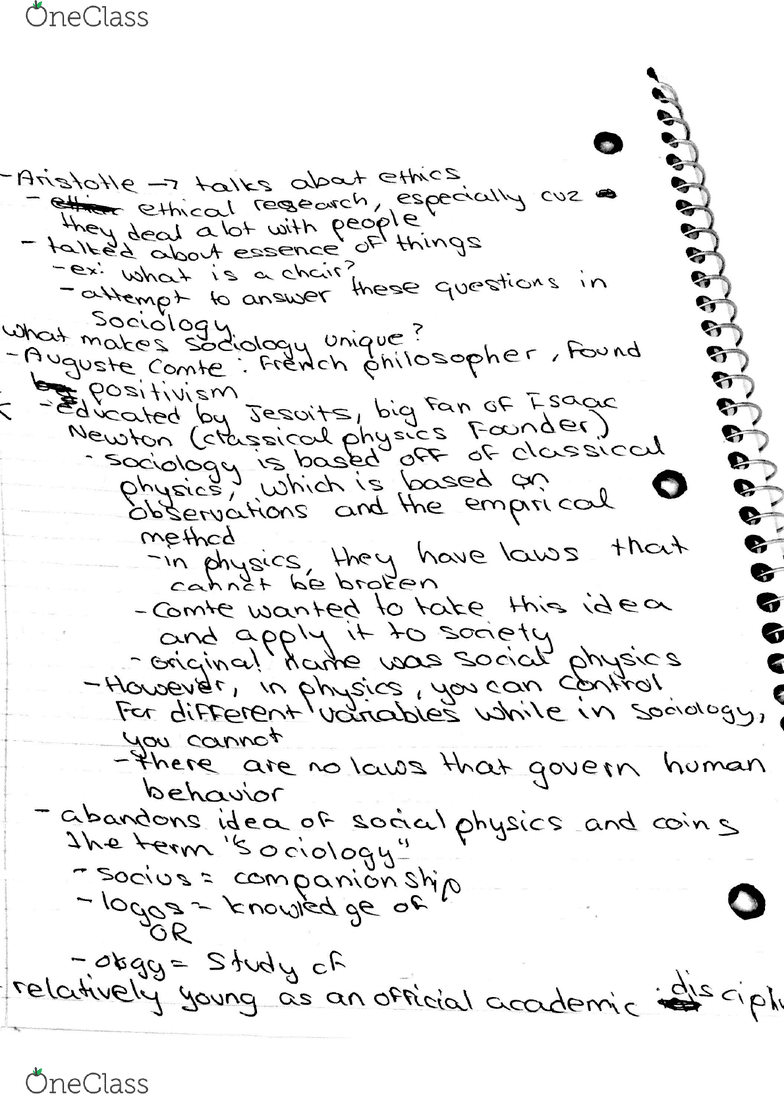 OneClass
-Aristotle → talks about ethics
- ethical research, especially cuz
they deal a lot with people
- talked about essence of things
-ex: what is a chair?
-attempt to answer these questions in
Sociology
what makes sociology unique?
-Auguste Comte: French philosopher, found
positivism
-educated by Jesuits, big fan of Isaac
Newton (classical physics founder)
- sociology is based off of classical
physics, which is based on
observations and the empirical
method
-in physics, they have laws that
cannot be broken
-Comte wanted to take this idea
and apply it to society
-original name was social physics
-However, in physics, you can control
for different variables while in sociology,
you cannot
-there are no laws that govern human
behavior
- abandons idea of social physics and coins
the term "sociology"
- socius = companionship
- logos = knowledge of
OR
- = study of
relatively young as an official academic
OneClass